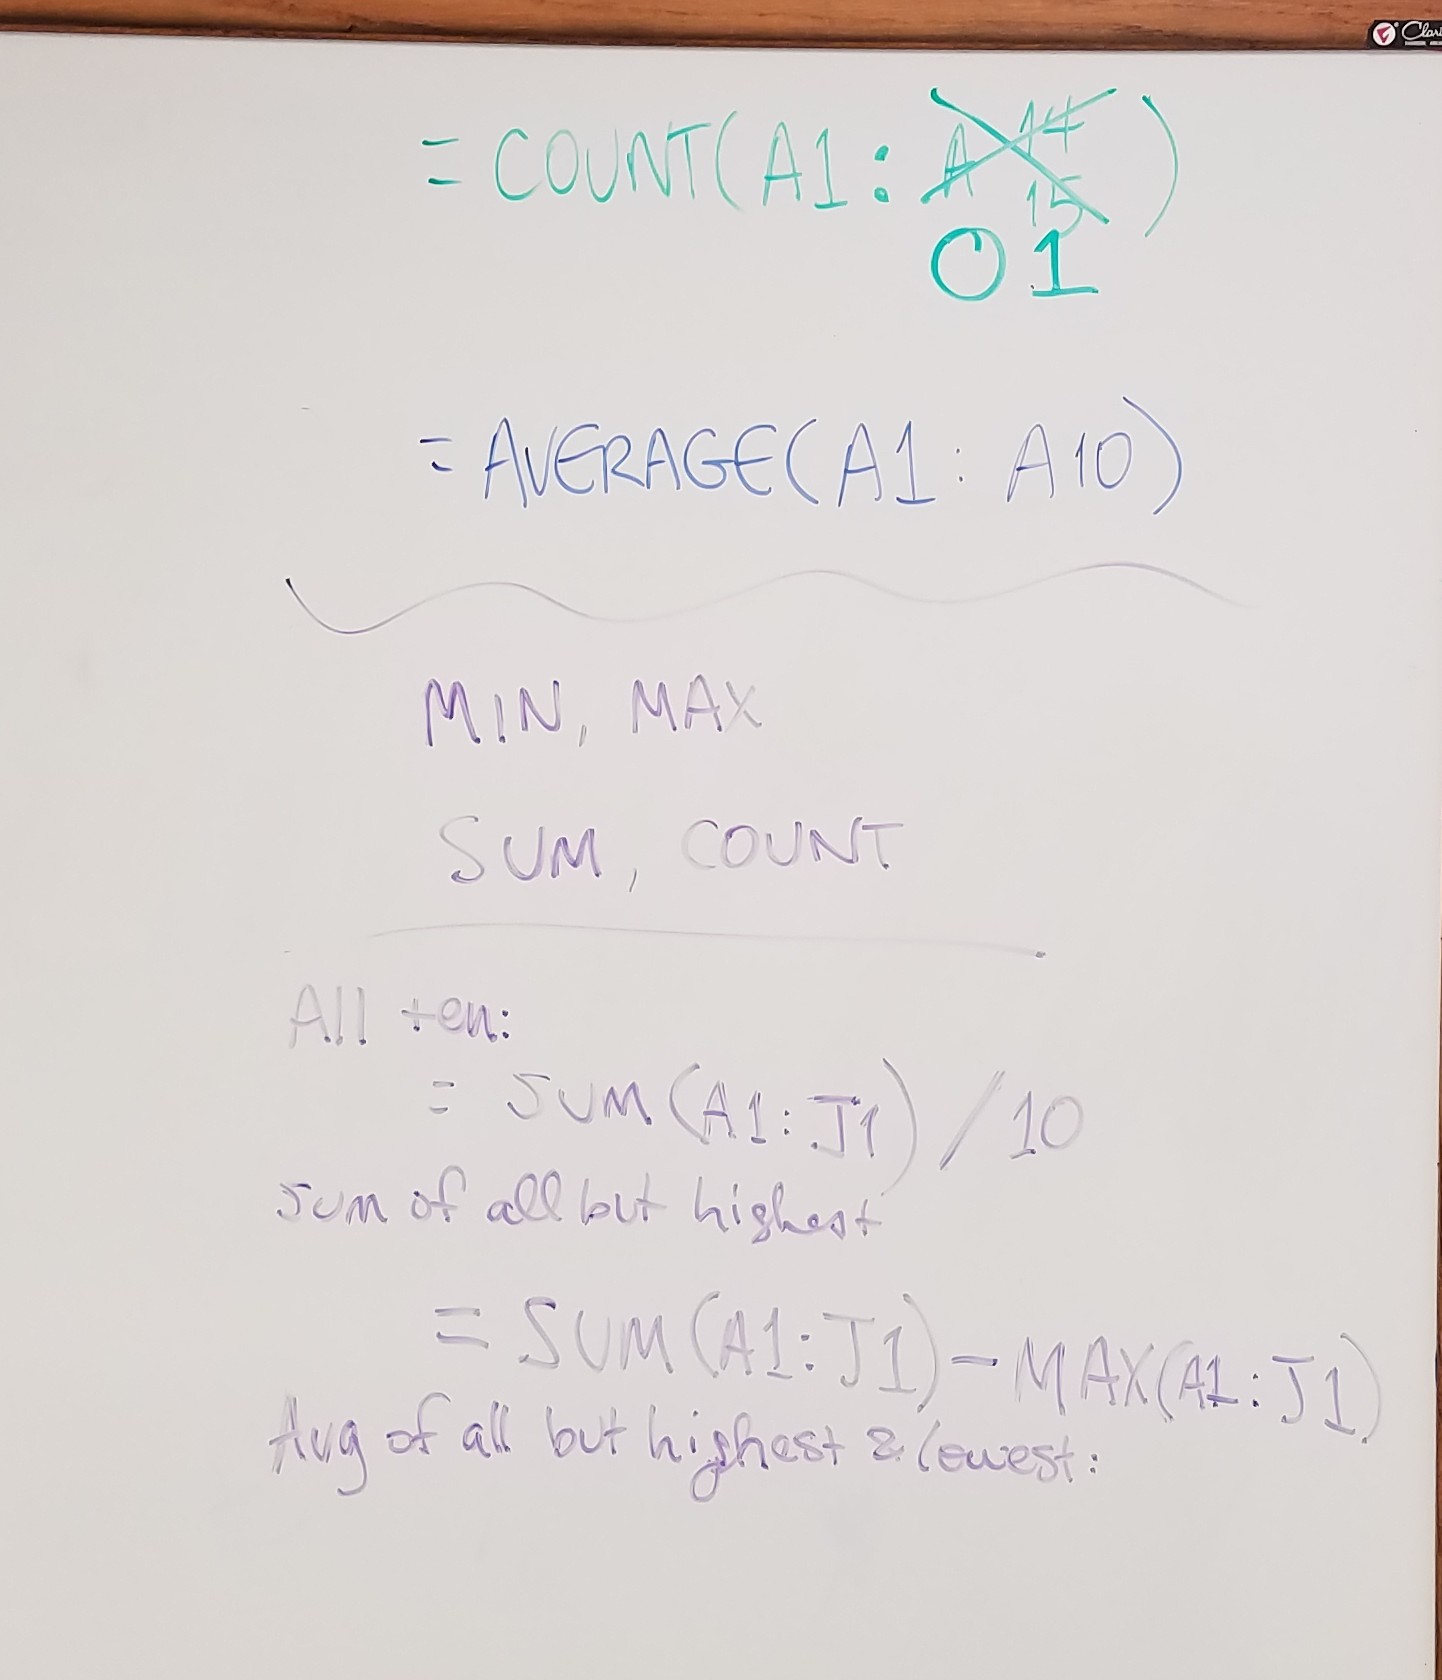 = COUNT(A1: A 14 15)
O1
= AVERAGE(A1: A10)
MIN, MAX
SUM, COUNT
All ten:
= SUM(A1:J1)/10
Sum of all but highest
= SUM(A1:J1)-MAX(A1:J1)
Avg of all but highest & lowest: